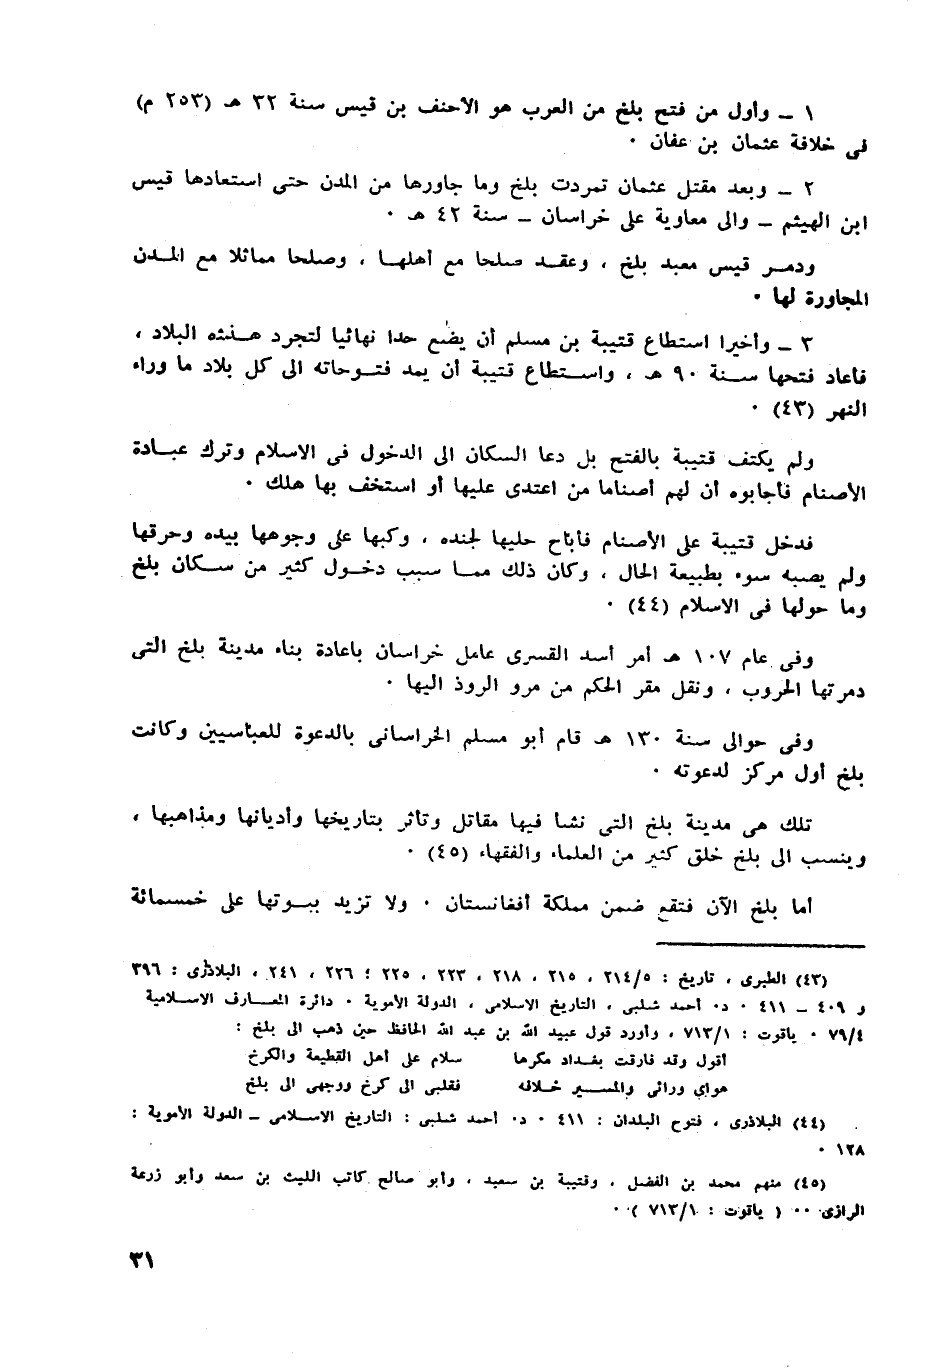 ١ ـ وأول من فتح بلخ من العرب هو الأحنف بن قيس سنة ٣٢ هـ (٢٥٣ م)
فى خلافة عثمان بن عفان ٠
٢ ـ وبعد مقتل عثمان تمردت بلخ وما جاورها من المدن حتى استعادها قيس
ابن الهيثم ـ والى معاوية على خراسان ـ سنة ٤٢ هـ ٠
ودمـر قيس معبد بلخ ، وعقـد صلحا مع أهلهـا ، وصلحا مماثلا مع المـدن
المجاورة لها ٠
٣ ـ وأخيرا استطاع قتيبة بن مسلم أن يضع حدا نهائيا لتجرد هـذه البلاد ،
فأعاد فتحها سـنة ٩٠ هـ ، واسـتطاع قتيبة أن يمد فتـوحاته الى كل بلاد ما وراء
النهر (٤٣) ٠
ولم يكتف قتيبة بالفتح بل دعا السكان الى الدخول فى الاسلام وترك عبـادة
الأصنام فأجابوه أن لهم أصناما من اعتدى عليها أو استخف بها هلك ٠
فدخل قتيبة على الأصنام فأباح حليها لجنده ، وكبها على وجوهها بيده وحرقها
ولم يصبه سوء بطبيعة الحال ، وكان ذلك ممـا سبب دخـول كثير من سـكان بلخ
وما حولها فى الاسلام (٤٤) ٠
وفى عام ١٠٧ هـ أمر أسد القسرى عامل خراسان باعادة بناء مدينة بلخ التى
دمرتها الحروب ، ونقل مقر الحكم من مرو الروذ اليها ٠
وفى حوالى سنة ١٣٠ هـ قام أبو مسلم الخراسانى بالدعوة للعباسيين وكانت
بلخ أول مركز لدعوته ٠
تلك هى مدينة بلخ التى نشأ فيها مقاتل وتأثر بتاريخها وأديانها ومذاهبها ،
وينسب الى بلخ خلق كثير من العلماء والفقهاء (٤٥) ٠
أما بلخ الآن فتقع ضمن مملكة أفغانستان ٠ ولا تزيد بيـوتها على خمسمائة
(٤٣) الطبرى ، تاريخ : ٢١٤/٥ ، ٢١٥ ، ٢١٨ ، ٢٢٣ ، ٢٢٥ ؛ ٢٢٦ ، ٢٤١ ، البلاذرى : ٣٩٦
و ٤٠٩ ـ ٤١١ ٠ د٠ أحمد شلبى ، التاريخ الاسلامى ، الدولة الأموية ٠ دائرة المعـارف الاسـلامية
٧٩/٤ ٠ ياقوت : ٧١٣/١ ، وأورد قول عبيد الله بن عبد الله الحافظ حين ذهب الى بلخ :
أقول وقد فارقت بغـداد مكرها سلام على أهل القطيعة والكرخ
هواى ورائى والمسـير خـلافه فقلبى الى كرخ ووجهى الى بلخ
(٤٤) البلاذرى ، فتوح البلدان : ٤١١ ٠ د٠ أحمد شـلبى : التاريخ الاسـلامى ـ الدولة الأموية :
١٢٨ ٠
(٤٥) منهم محمد بن الفضل ، وقتيبة بن سعيد ، وأبو صالح كاتب الليث بن سعد وأبو زرعة
الرازى ٠٠ ( ياقوت : ٧١٣/١ ) ٠
٣١